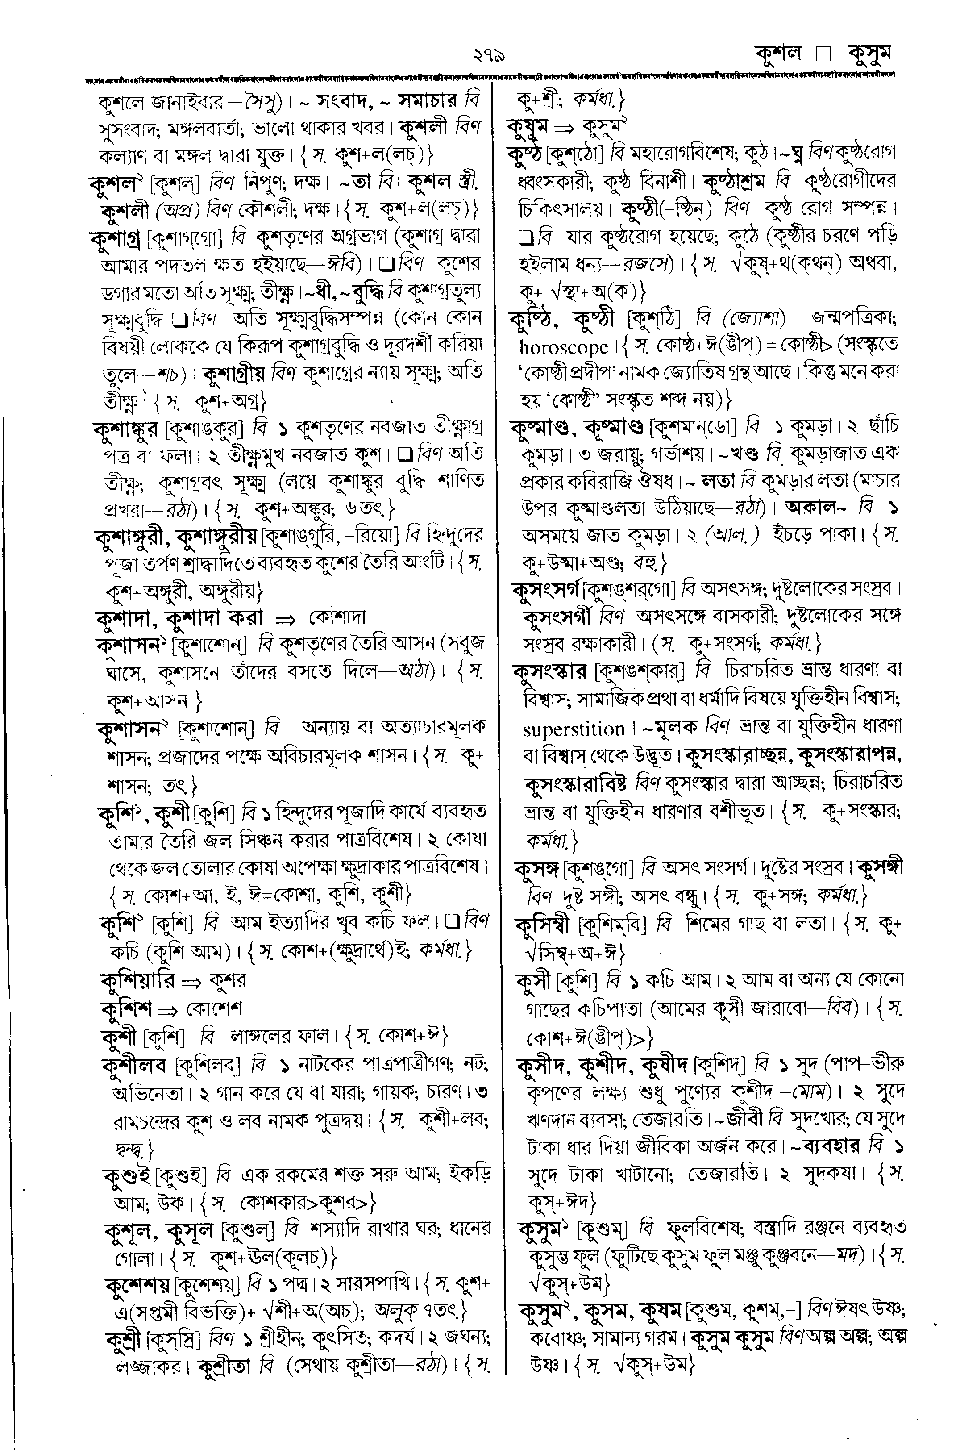 ২৭৯
কুশল □ কুসুম
কুশলে জানাইবার—সৈসু)। ~ সংবাদ, ~ সমাচার বি
সুসংবাদ; মঙ্গলবার্তা; ভালো থাকার খবর। কুশলী বিণ
কল্যাণ বা মঙ্গল দ্বারা যুক্ত। {স. কুশ+ল(লচ্)}
কুশল২ [কুশল্] বিণ নিপুণ; দক্ষ। ~তা বি। কুশল স্ত্রী.
কুশলী (অপ্র) বিণ কৌশলী; দক্ষ। {স. কুশ+ল(লচ্)}
কুশাগ্র [কুশাগ্‌গ্রো] বি কুশতৃণের অগ্রভাগ (কুশাগ্র দ্বারা
আমার পদতল ক্ষত হইয়াছে—ঈবি)। □বিণ কুশের
ডগার মতো অতি সূক্ষ্ম; তীক্ষ্ণ। ~ধী, ~বুদ্ধি বি কুশাগ্রতুল্য
সূক্ষ্মবুদ্ধি □বিণ অতি সূক্ষ্মবুদ্ধিসম্পন্ন (কোন কোন
বিষয়ী লোককে যে কিরূপ কুশাগ্রবুদ্ধি ও দূরদর্শী করিয়া
তুলে—শচ)। কুশাগ্রীয় বিণ কুশাগ্রের ন্যায় সূক্ষ্ম; অতি
তীক্ষ্ণ। {স. কুশ+অগ্র}
কুশাঙ্কুর [কুশাঙ্‌কুর্] বি ১ কুশতৃণের নবজাত তীক্ষ্ণাগ্র
পত্র বা ফলা। ২ তীক্ষ্ণমুখ নবজাত কুশ। □বিণ অতি
তীক্ষ্ণ; কুশাগ্রবৎ সূক্ষ্ম (লয়ে কুশাঙ্কুর বুদ্ধি শাণিত
প্রখরা—রঠা)। {স. কুশ+অঙ্কুর; ৬তৎ}
কুশাঙ্গুরী, কুশাঙ্গুরীয় [কুশাঙ্‌গুরি, –রিয়ো] বি হিন্দুদের
পূজা তর্পণ শ্রাদ্ধাদিতে ব্যবহৃত কুশের তৈরি আংটি। {স.
কুশ+অঙ্গুরী, অঙ্গুরীয়}
কুশাদা, কুশাদা করা ⇒ কোশাদা
কুশাসন১ [কুশাশোন্] বি কুশতৃণের তৈরি আসন (সবুজ
ঘাসে, কুশাসনে তাঁদের বসতে দিলে—অঠা)। {স.
কুশ+আসন}
কুশাসন২ [কুশাশোন্] বি অন্যায় বা অত্যাচারমূলক
শাসন; প্রজাদের পক্ষে অবিচারমূলক শাসন। {স. কু+
শাসন; তৎ}
কুশি১, কুশী [কুশি] বি ১ হিন্দুদের পূজাদি কার্যে ব্যবহৃত
তামার তৈরি জল সিঞ্চন করার পাত্রবিশেষ। ২ কোষা
থেকে জল তোলার কোষা অপেক্ষা ক্ষুদ্রাকার পাত্রবিশেষ।
{স. কোশ+আ, ই, ঈ=কোশা, কুশি, কুশী}
কুশি২ [কুশি] বি আম ইত্যাদির খুব কচি ফল। □বিণ
কচি (কুশি আম)। {স. কোশ+(ক্ষুদ্রার্থে)ই; কর্মধা.}
কুশিয়ারি ⇒ কুশর
কুশিশ ⇒ কোশেশ
কুশী [কুশি] বি লাঙ্গলের ফাল। {স. কোশ+ঈ}
কুশীলব [কুশিলব্] বি ১ নাটকের পাত্রপাত্রীগণ; নট;
অভিনেতা। ২ গান করে যে বা যারা; গায়ক; চারণ। ৩
রামচন্দ্রের কুশ ও লব নামক পুত্রদ্বয়। {স. কুশী+লব;
দ্বন্দ্ব.}
কুশুই [কুশুই] বি এক রকমের শক্ত সরু আম; ইকড়ি
আম; উক। {স. কোশকার>কুশর>}
কুশূল, কুসূল [কুশুল্] বি শস্যাদি রাখার ঘর; ধানের
গোলা। {স. কুশ+ঊল(কূলচ্)}
কুশেশয় [কুশেশয়্] বি ১ পদ্ম। ২ সারসপাখি। {স. কুশ+
এ(সপ্তমী বিভক্তি)+ √শী+অ(অচ্); অলুক ৭তৎ}
কুশ্রী [কুস্‌স্রি] বিণ ১ শ্রীহীন; কুৎসিত; কদর্য। ২ জঘন্য;
লজ্জাকর। কুশ্রীতা বি (সেথায় কুশ্রীতা—রঠা)। {স.
কু+শ্রী; কর্মধা.}
কুষুম ⇒ কুসুম২
কুষ্ঠ [কুশ্‌ঠো] বি মহারোগবিশেষ; কুঠ। ~ঘ্ন বিণ কুষ্ঠরোগ
ধ্বংসকারী; কুষ্ঠ বিনাশী। কুষ্ঠাশ্রম বি কুষ্ঠরোগীদের
চিকিৎসালয়। কুষ্ঠী(–ষ্ঠিন্) বিণ কুষ্ঠ রোগ সম্পন্ন।
□বি যার কুষ্ঠরোগ হয়েছে; কুঠে (কুষ্ঠীর চরণে পড়ি
হইলাম ধন্য—রজসে)। {স. √কুষ্+থ(ক্থন্) অথবা,
কু+ √স্থা+অ(ক)}
কুষ্ঠি, কুষ্ঠী [কুশ্‌ঠি] বি (জ্যোশা) জন্মপত্রিকা;
horoscope। {স. কোষ্ঠ+ঈ(ঙীপ্)=কোষ্ঠী> (সংস্কৃতে
‘কোষ্ঠী প্রদীপ’ নামক জ্যোতিষ গ্রন্থ আছে। কিন্তু মনে করা
হয় ‘কোষ্ঠী’ সংস্কৃত শব্দ নয়)}
কুষ্মাণ্ড, কূষ্মাণ্ড [কুশ্‌মান্‌ডো] বি ১ কুমড়া। ২ ছাঁচি
কুমড়া। ৩ জরায়ু; গর্ভাশয়। ~খণ্ড বি. কুমড়াজাত এক
প্রকার কবিরাজি ঔষধ। ~ লতা বি কুমড়ার লতা (মাচার
উপর কুষ্মাণ্ডলতা উঠিয়াছে—রঠা)। অকাল~ বি ১
অসময়ে জাত কুমড়া। ২ (আল.) ইঁচড়ে পাকা। {স.
কু+উষ্মা+অণ্ড; বহু}
কুসংসর্গ [কুশঙ্‌শর্‌গো] বি অসৎসঙ্গ; দুষ্টলোকের সংস্রব।
কুসংসর্গী বিণ অসৎসঙ্গে বাসকারী; দুষ্টলোকের সঙ্গে
সংস্রব রক্ষাকারী। {স. কু+সংসর্গ; কর্মধা.}
কুসংস্কার [কুশঙ্‌শ্‌কার্] বি চিরাচরিত ভ্রান্ত ধারণা বা
বিশ্বাস; সামাজিক প্রথা বা ধর্মাদি বিষয়ে যুক্তিহীন বিশ্বাস;
superstition। ~মূলক বিণ ভ্রান্ত বা যুক্তিহীন ধারণা
বা বিশ্বাস থেকে উদ্ভূত। কুসংস্কারাচ্ছন্ন, কুসংস্কারাপন্ন,
কুসংস্কারাবিষ্ট বিণ কুসংস্কার দ্বারা আচ্ছন্ন; চিরাচরিত
ভ্রান্ত বা যুক্তিহীন ধারণার বশীভূত। {স. কু+সংস্কার;
কর্মধা.}
কুসঙ্গ [কুশঙ্‌গো] বি অসৎ সংসর্গ। দুষ্টের সংস্রব। কুসঙ্গী
বিণ দুষ্ট সঙ্গী; অসৎ বন্ধু। {স. কু+সঙ্গ; কর্মধা.}
কুসিম্বী [কুশিম্‌বি] বি শিমের গাছ বা লতা। {স. কু+
√সিম্ব্+অ+ঈ}
কুসী [কুশি] বি ১ কচি আম। ২ আম বা অন্য যে কোনো
গাছের কচিপাতা (আমের কুসী জারাবো—বিব)। {স.
কোশ+ঈ(ঙীপ্)>}
কুসীদ, কুশীদ, কুষীদ [কুশিদ্] বি ১ সুদ (পাপ-ভীরু
কৃপণের লক্ষ্য শুধু পুণ্যের কুশীদ—মোম)। ২ সুদে
ঋণদান ব্যবসা; তেজারতি। ~জীবী বি সুদখোর; যে সুদে
টাকা ধার দিয়া জীবিকা অর্জন করে। ~ব্যবহার বি ১
সুদে টাকা খাটানো; তেজারতি। ২ সুদকষা। {স.
কুস্+ঈদ}
কুসুম১ [কুশুম্] বি ফুলবিশেষ; বস্ত্রাদি রঞ্জনে ব্যবহৃত
কুসুম্ভ ফুল (ফুটিছে কুসুম ফুল মঞ্জু কুঞ্জবনে—মদ)। {স.
√কুস্+উম}
কুসুম২, কুসম, কুষম [কুশুম, কুশম,–] বিণ ঈষৎ উষ্ণ;
কবোষ্ণ; সামান্য গরম। কুসুম কুসুম বিণ অল্প অল্প; অল্প
উষ্ণ। {স. √কুস্+উম}